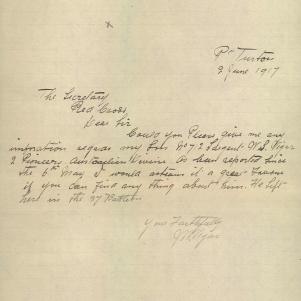 Pt Turton
2 June 1917
The Secretary
Red Cross,
Dear Sir
Could you Please give me any
imformation regards my Son No 72 Sargent W.S.
2 Pioneers, Australian Divisin As been reported
the 6th May I would asteam it a great
if you can find any thing about him. He left
here in the 27 Battalion
Yours Faithfully